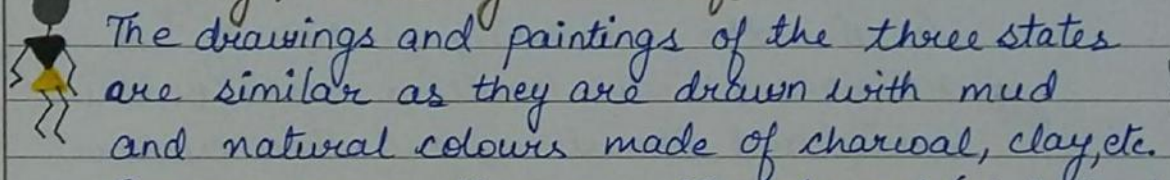 The drawings and paintings of the three states
are similar as they are drawn with mud
and natural colours made of charcoal, clay, etc.